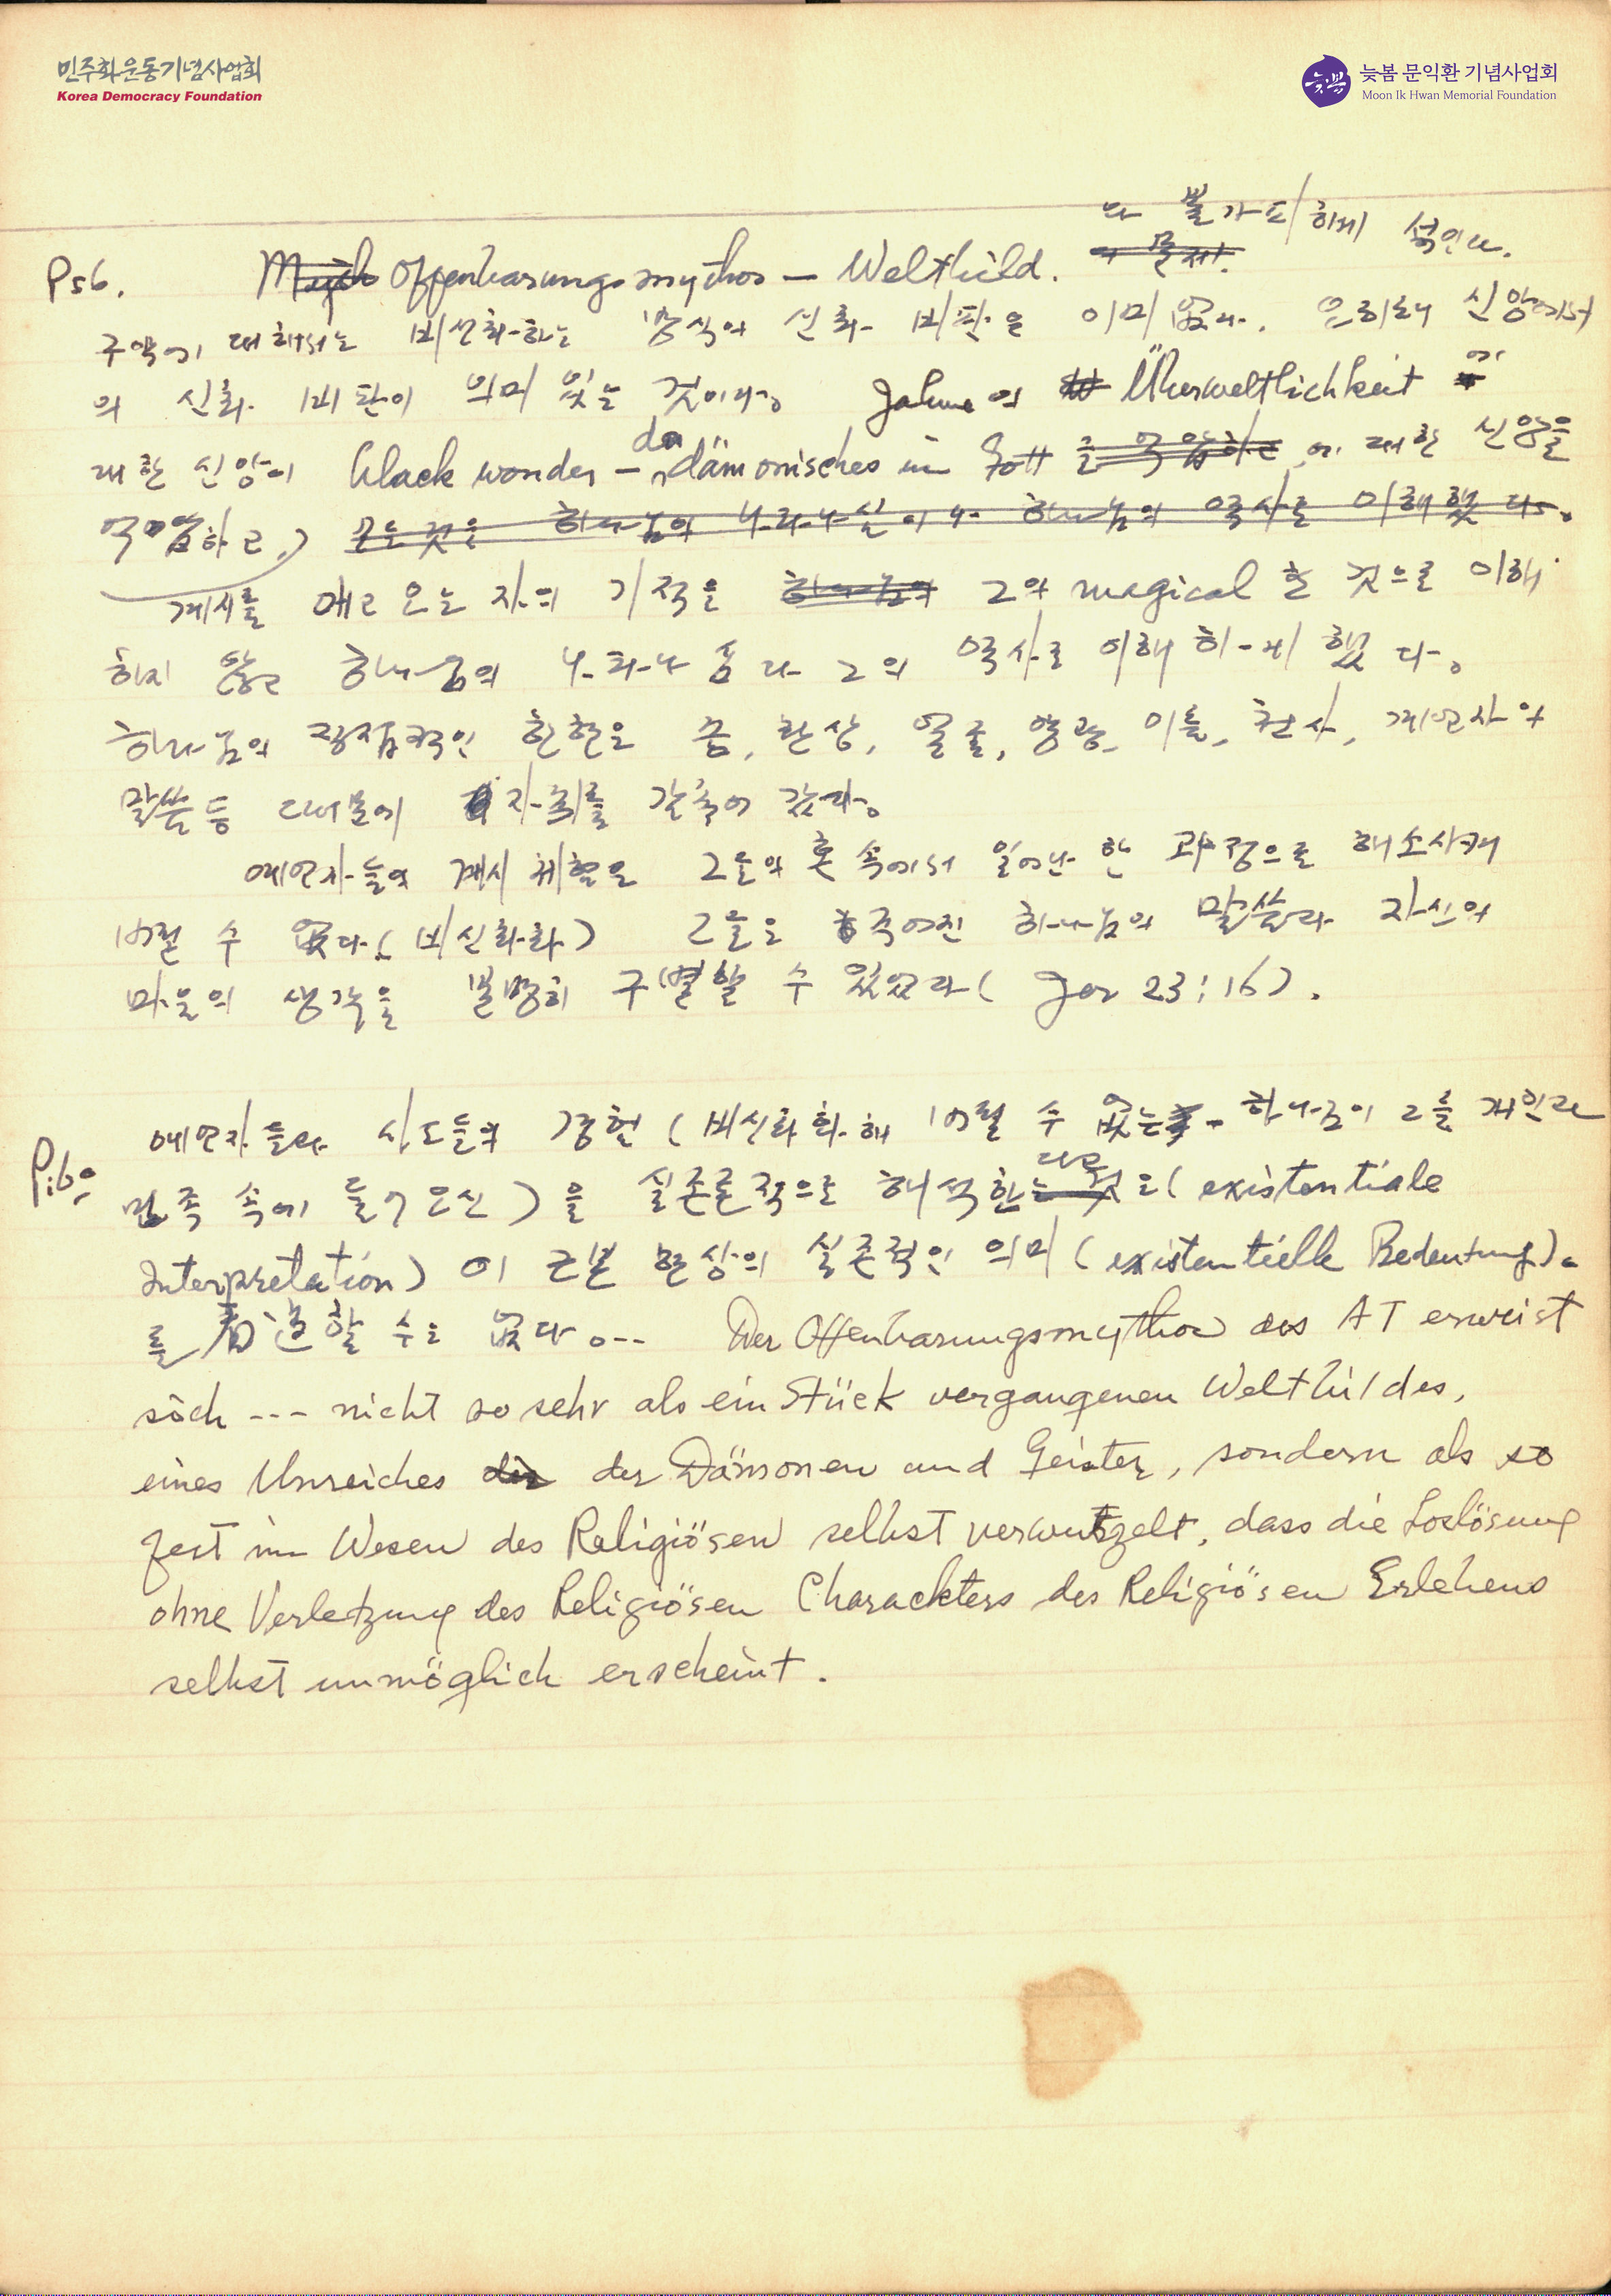 민주화운동기념사업회
Korea Democracy Foundation
늦봄
늦봄 문익환 기념사업회
Moon Ik Hwan Memorial Foundation
와 불가피하게 섞인다.
P56. Offenbarungsmythos — Weltbild.
구약에 대해서는 비신화하는 방식의 신화 비판은 의미 없다. 신앙에서
의 신화 비판이 의미 있는 것이다。 Jahwe의 Überweltlichkeit 에
대한 신앙이 black wonder — da dämonisches in Gott 에 대한 신앙을
억압하고,
계시를 오는 자의 기적을 그의 magical 한 것으로 이해
하지 않고 하나님의 그의 역사로 이해하게 했다。
하나님의 은 꿈, 환상, 이름, 천사, 예언자의
말씀 등 자취를 감추어 갔다。
예언자들의 계시 체험을 그들의 혼 속에서 일어난 한 과정으로 해소시켜
버릴 수 없다. (비신화화) 그들은 주어진 하나님의 말씀과 자신의
마음의 생각을 분명히 구별할 수 있었다 ( Jer 23:16).
P.60 예언자들과 사도들의 경험 (비신화화해 버릴 수 없는 - 하나님이 그를 개인과
민족 속에 들어오신 ) 을 실존론적으로 해석한다고 (existentiale
Interpretation) 이 근본 현상의 실존적인 의미 (existentielle Bedeutung)。
를 看過할 수는 없다。-- Der Offenbarungsmythos des AT erweist
sich --- nicht so sehr als ein Stück vergangenen Weltbildes,
eines Unreiches der Dämonen und Geister, sondern als so
fest im Wesen des Religiösen selbst verwurzelt, dass die Loslösung
ohne Verletzung des Religiösen Charackters des Religiösen Erlebens
selbst unmöglich erscheint.